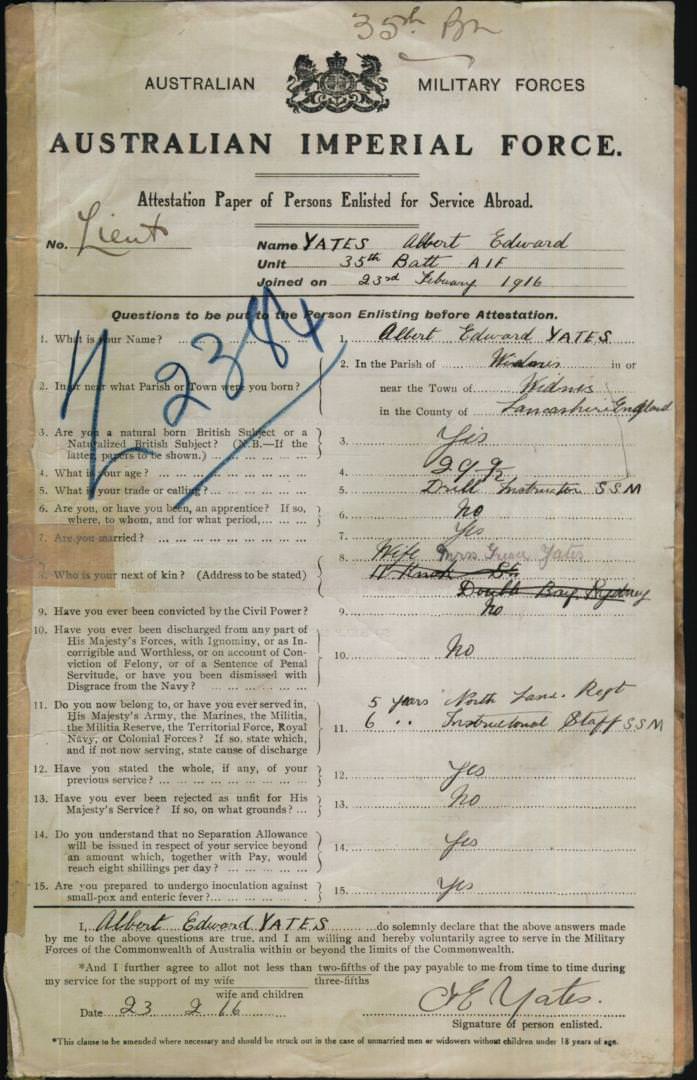 35th Bn
AUSTRALIAN MILITARY FORCES
AUSTRALIAN IMPERIAL FORCE.
Attestation Paper of Persons Enlisted for Service Abroad.
No. Lieut
Name YATES Albert Edward
Unit 35th Batt AIF
Joined on 23rd February 1916
Questions to be put to the Person Enlisting before Attestation.
2384
1. What is your Name? ... 1. Albert Edward YATES
2. In or near what Parish or Town were you born? ...
2. In the Parish of Widnes in or
near the Town of Widnes
in the County of Lancashire England
3. Are you a natural born British Subject or a
Naturalized British Subject? (N.B.—If the
latter, papers to be shown.) ... 3. Yes
4. What is your age? ... 4. 29 9/12
5. What is your trade or calling? ... 5. Drill Instructor SSM
6. Are you, or have you been, an apprentice? If so,
where, to whom, and for what period, ... 6. No
7. Are you married? ... 7. Yes
8. Who is your next of kin? (Address to be stated)
8. Wife Mrs. Yates
St.
Double Bay Sydney
9. Have you ever been convicted by the Civil Power? 9. No
10. Have you ever been discharged from any part of
His Majesty's Forces, with Ignominy, or as In-
corrigible and Worthless, or on account of Con-
viction of Felony, or of a Sentence of Penal
Servitude, or have you been Dismissed with
Disgrace from the Navy? ... 10. No
11. Do you now belong to, or have you ever served in,
His Majesty's Army, the Marines, the Militia,
the Militia Reserve, the Territorial Force, Royal
Navy, or Colonial Forces? If so, state which,
and if not now serving, state cause of discharge
11. 5 years North Lanc. Regt
6 " Instructional Staff SSM
12. Have you stated the whole, if any, of your
previous service? ... 12. Yes
13. Have you ever been rejected as unfit for His
Majesty's Service? If so, on what grounds? ... 13. No
14. Do you understand that no Separation Allowance
will be issued in respect of your service beyond
an amount which, together with Pay, would
reach eight shillings per day? ... 14. Yes
15. Are you prepared to undergo inoculation against
small-pox and enteric fever? ... 15. Yes
I, Albert Edward YATES do solemnly declare that the above answers made
by me to the above questions are true, and I am willing and hereby voluntarily agree to serve in the Military
Forces of the Commonwealth of Australia within or beyond the limits of the Commonwealth.
*And I further agree to allot not less than two-fifths of the pay payable to me from time to time during
three-fifths
my service for the support of my wife
wife and children
Date 23 2 16
A E Yates.
Signature of person enlisted.
*This clause to be amended where necessary and should be struck out in the case of unmarried men or widowers without children under 18 years of age.